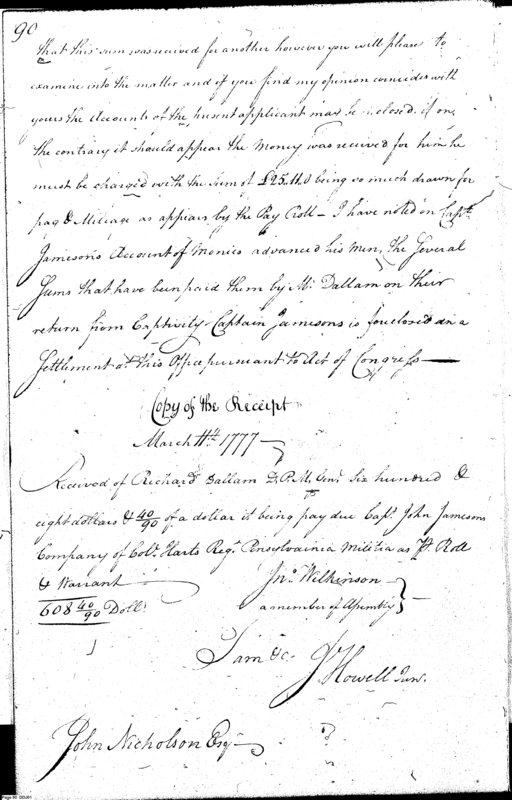 90
that this sum was received for another however you will please to
examine into the matter and if you find my opinion coincides with
yours the Accounts of the present applicant may be closed. if on
the contrary it should appear the Money was received for him he
must be charged with the Sum of £25.11.0 being so much drawn for
pay & Mileage as appears by the Pay Roll – I have noted on Capt.
Jameson's Account of Monies advanced his Men, the Several
Sums that have been paid them by Mr. Dallam on their
return from Captivity Captain Jamesons is foreclosed in a
Settlement at this Office pursuant to Act of Congress —
Copy of the Receipt
March 11th. 1777 —
Received of Richard Dallam D. P. M. Genl. Six hundred &
eight dollars & 40/90 of a dollar it being pay due Capt. John Jamesons
Company of Colo. Harts Regt. Pensylvainia Militia as Pr. Roll
& Warrant
Jno. Wilkinson
608 40/90 Dolls.
a member of Assembly
I am &c.
Js. Howell Junr.
John Nicholson Esqr.